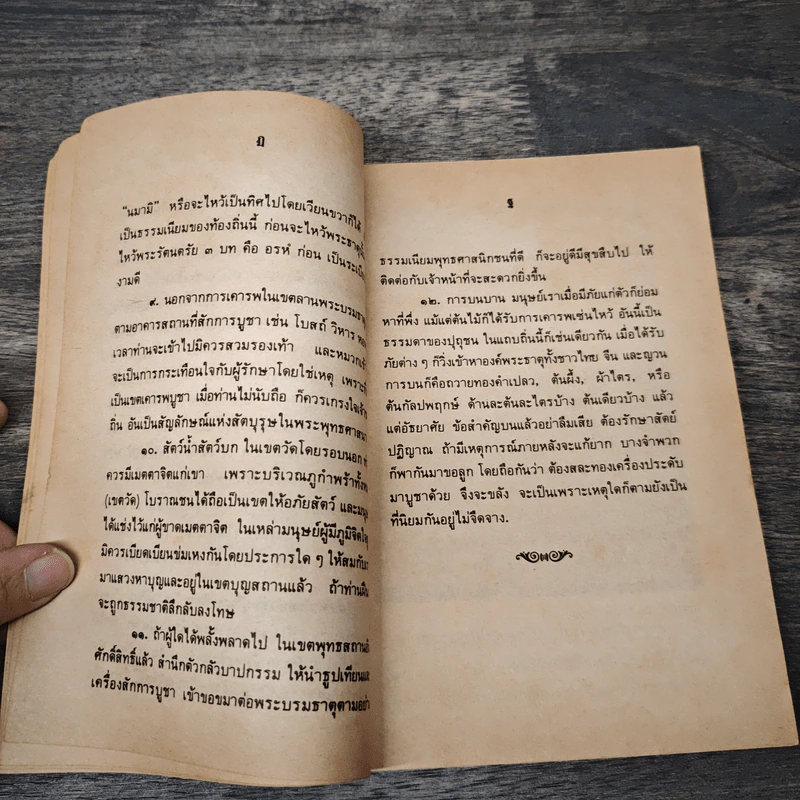 ฏ
"นมามิ" หรือจะไหว้เป็นทิศไปโดยเวียนขวาก็ได้
เป็นธรรมเนียมของท้องถิ่นนี้ ก่อนจะไหว้พระธาตุ
ไหว้พระรัตนตรัย ๓ บท คือ อรหํ ก่อน เป็นระเบีย
งามดี
๙. นอกจากการเคารพในเขตลานพระบรมธา
ตามอาคารสถานที่สักการบูชา เช่น โบสถ์ วิหาร
เวลาท่านจะเข้าไปมิควรสวมรองเท้า และหมวก
จะเป็นการกระเทือนใจกับผู้รักษาโดยใช่เหตุ เพราะ
เป็นเขตเคารพบูชา เมื่อท่านไม่นับถือ ก็ควรเกรงใจ
ถิ่น อันเป็นสัญลักษณ์แห่งสัตบุรุษในพระพุทธศาสนา
๑๐. สัตว์น้ำสัตว์บก ในเขตวัดโดยรอบนอก
ควรมีเมตตาจิตแก่เขา เพราะบริเวณภูกำพร้าทั้ง
(เขตวัด) โบราณชนได้ถือเป็นเขตให้อภัยสัตว์ และ
ได้แช่งไว้แก่ผู้ขาดเมตตาจิต ในเหล่ามนุษย์ผู้มีภูมิจิต
มิควรเบียดเบียนข่มเหงกันโดยประการใด ๆ ให้สมกับ
มาแสวงหาบุญและอยู่ในเขตบุญสถานแล้ว ถ้าท่าน
จะถูกธรรมชาติลึกลับลงโทษ
๑๑. ถ้าผู้ใดได้พลั้งพลาดไป ในเขตพุทธสถาน
ศักดิ์สิทธิ์แล้ว สำนึกตัวกลัวบาปกรรม ให้นำธูปเทียน
เครื่องสักการบูชา เข้าขอขมาต่อพระบรมธาตุตามอย่า
ฐ
ธรรมเนียมพุทธศาสนิกชนที่ดี ก็จะอยู่ดีมีสุขสืบไป ให้
ติดต่อกับเจ้าหน้าที่จะสะดวกยิ่งขึ้น
๑๒. การบนบาน มนุษย์เราเมื่อมีภัยแก่ตัวก็ย่อม
หาที่พึ่ง แม้แต่ต้นไม้ก็ได้รับการเคารพเซ่นไหว้ อันนี้เป็น
ธรรมดาของปุถุชน ในแถบถิ่นนี้ก็เช่นเดียวกัน เมื่อได้รับ
ภัยต่าง ๆ ก็วิ่งเข้าหาองค์พระธาตุทั้งชาวไทย จีน และญวน
การบนก็คือถวายทองคำเปลว, ต้นผึ้ง, ผ้าไตร, หรือ
ต้นกัลปพฤกษ์ ด้านละต้นละไตรบ้าง ต้นเดียวบ้าง แล้ว
แต่อัธยาศัย ข้อสำคัญบนแล้วอย่าลืมเสีย ต้องรักษาสัตย์
ปฏิญาณ ถ้ามีเหตุการณ์ภายหลังจะแก้ยาก บางจำพวก
ก็พากันมาขอลูก โดยถือกันว่า ต้องสละทองเครื่องประดับ
มาบูชาด้วย จึงจะขลัง จะเป็นเพราะเหตุใดก็ตามยังเป็น
ที่นิยมกันอยู่ไม่จืดจาง.